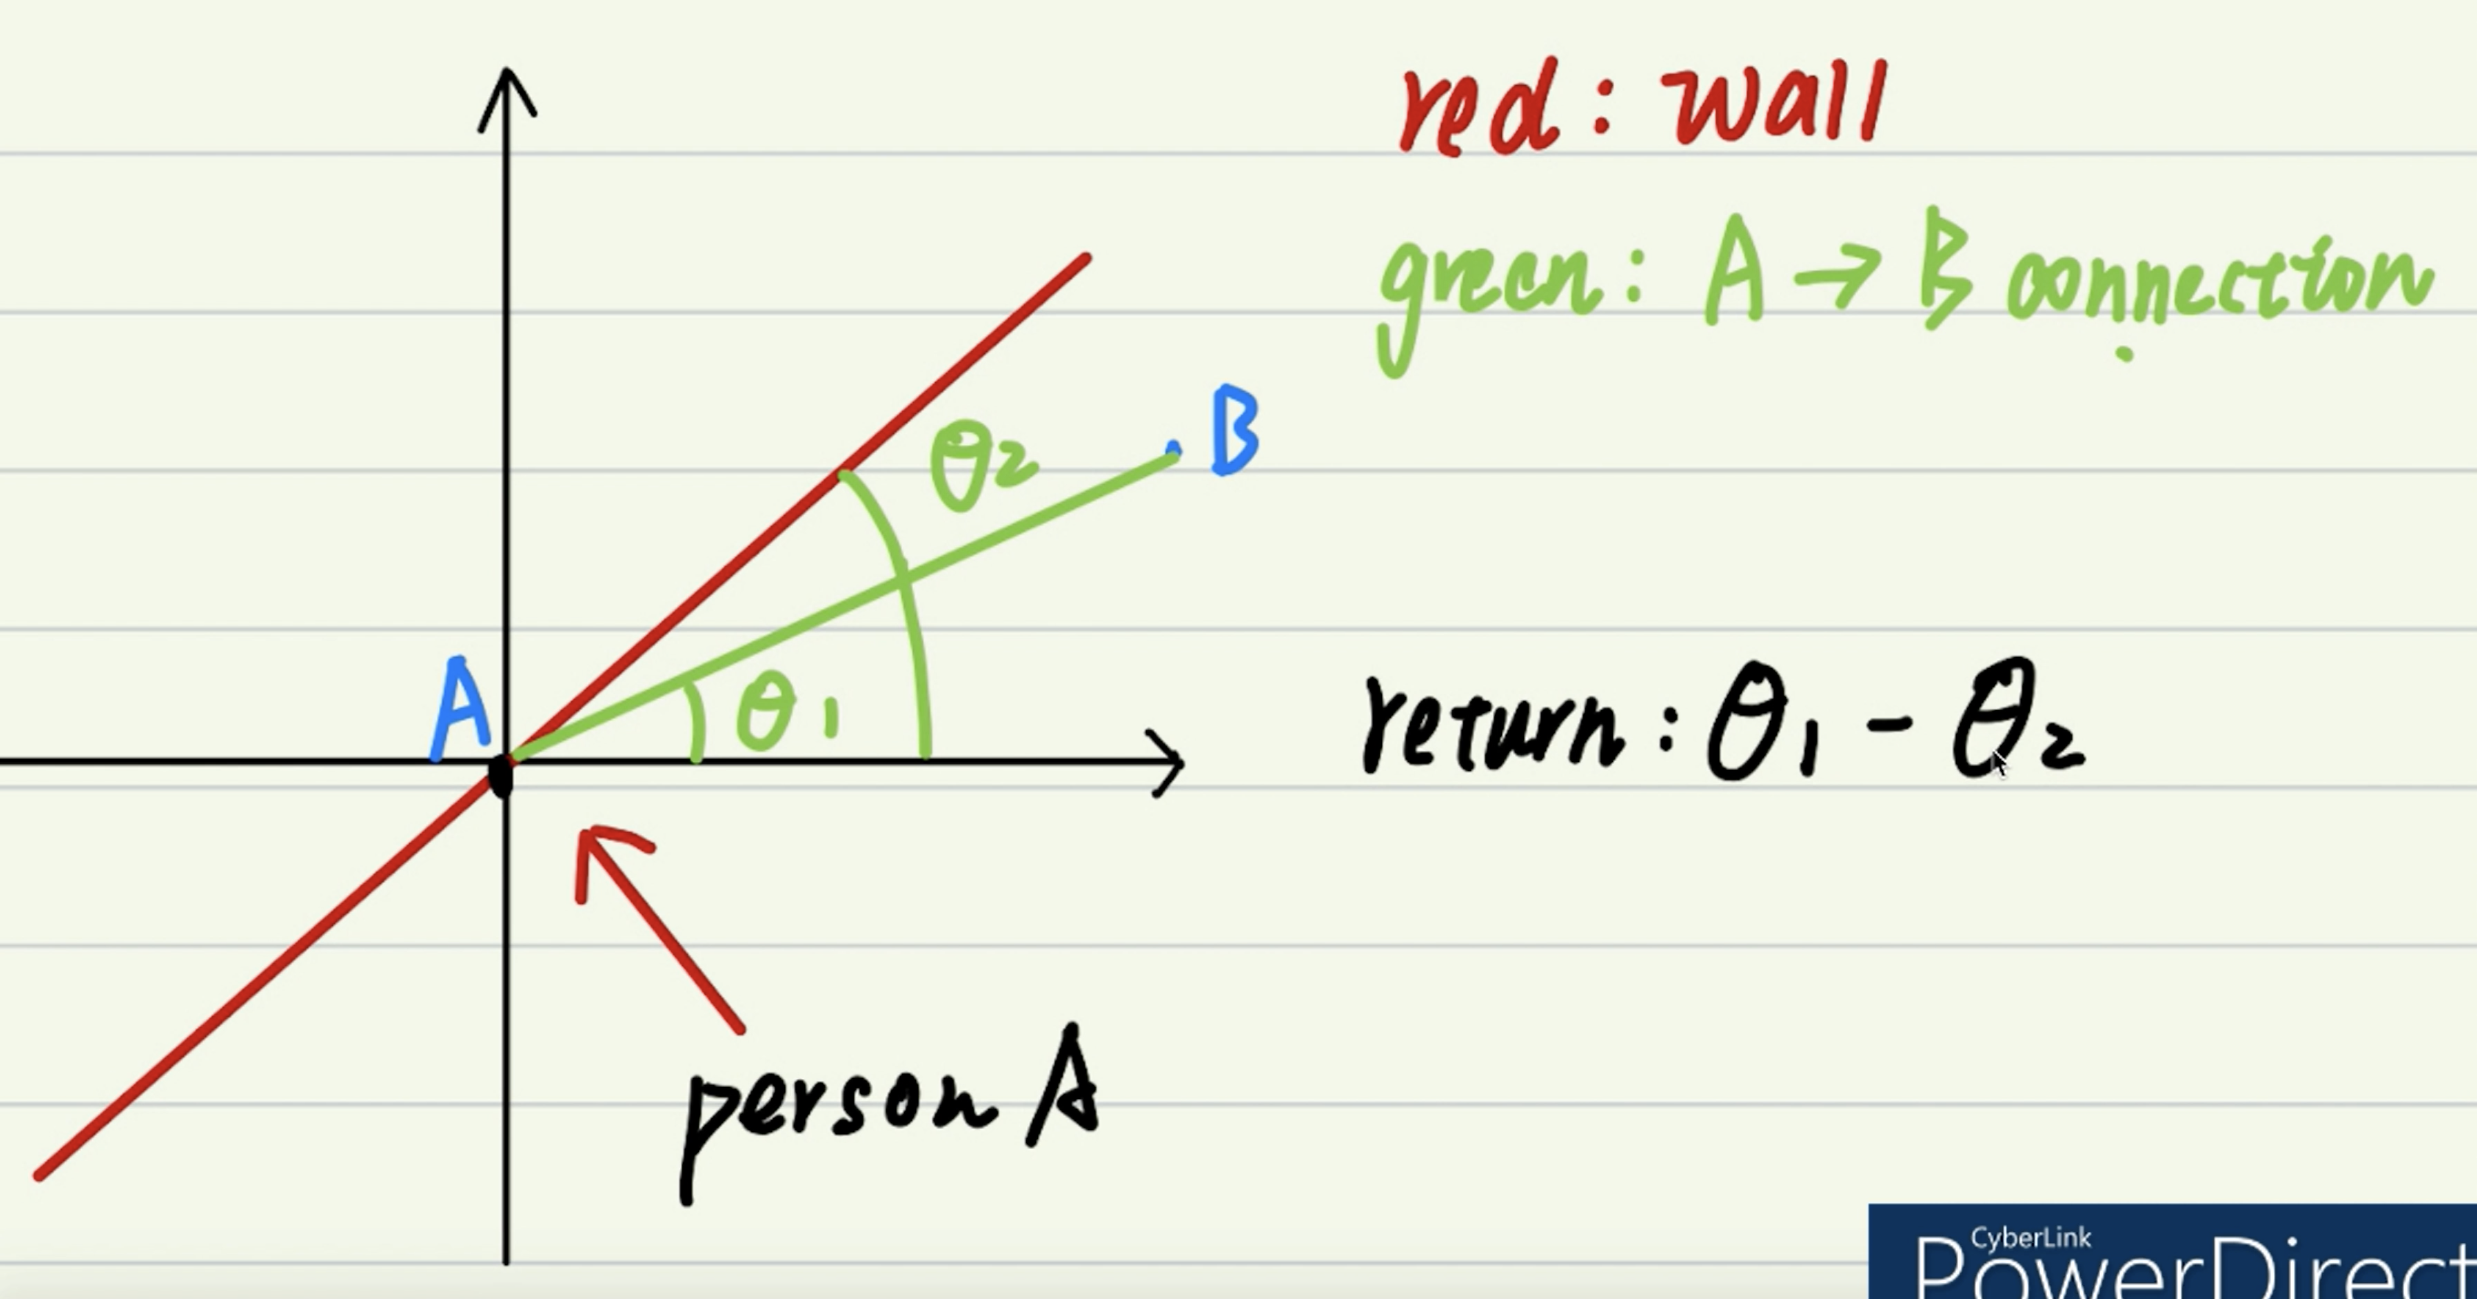 red: wall
green: A → B connection
B
θ₂
A
θ₁
return: θ₁ - θ₂
person A
CyberLink
PowerDirect